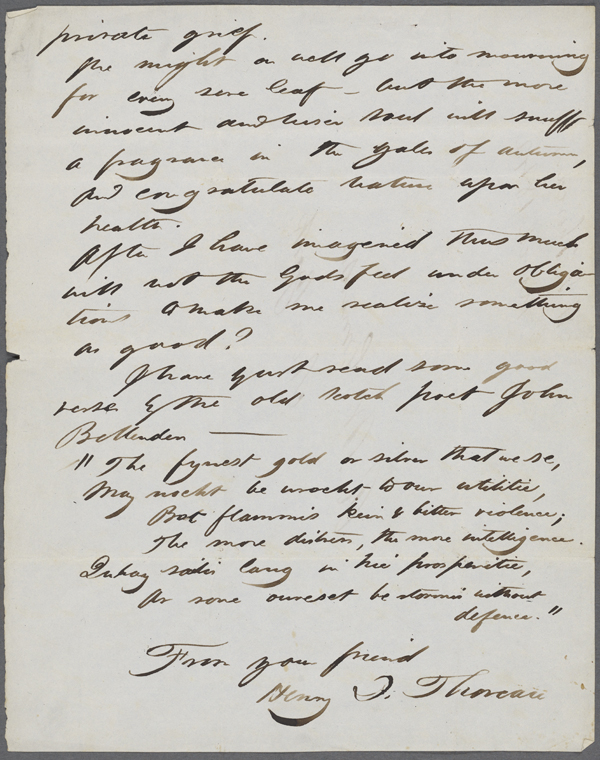 private grief.
We might as well go into mourning
for every sere leaf — but the more
innocent and wiser soul will snuff
a fragrance in the gales of autumn,
and congratulate Nature upon her
health.
After I have imagined thus much
will not the Gods feel under obliga
tions to make me realize something
as good?
I have just read some good
verse by the old Scotch poet John
Bellenden —
"The fynest gold or silver that we se,
May nocht be wrocht to our utilitie,
Bot flammis kein & bitter violence;
The more distress, the more intelligence.
Quhay sailis lang in hie prosperitie,
Ar sone oureset be stormis without
defence."
From your friend
Henry D. Thoreau